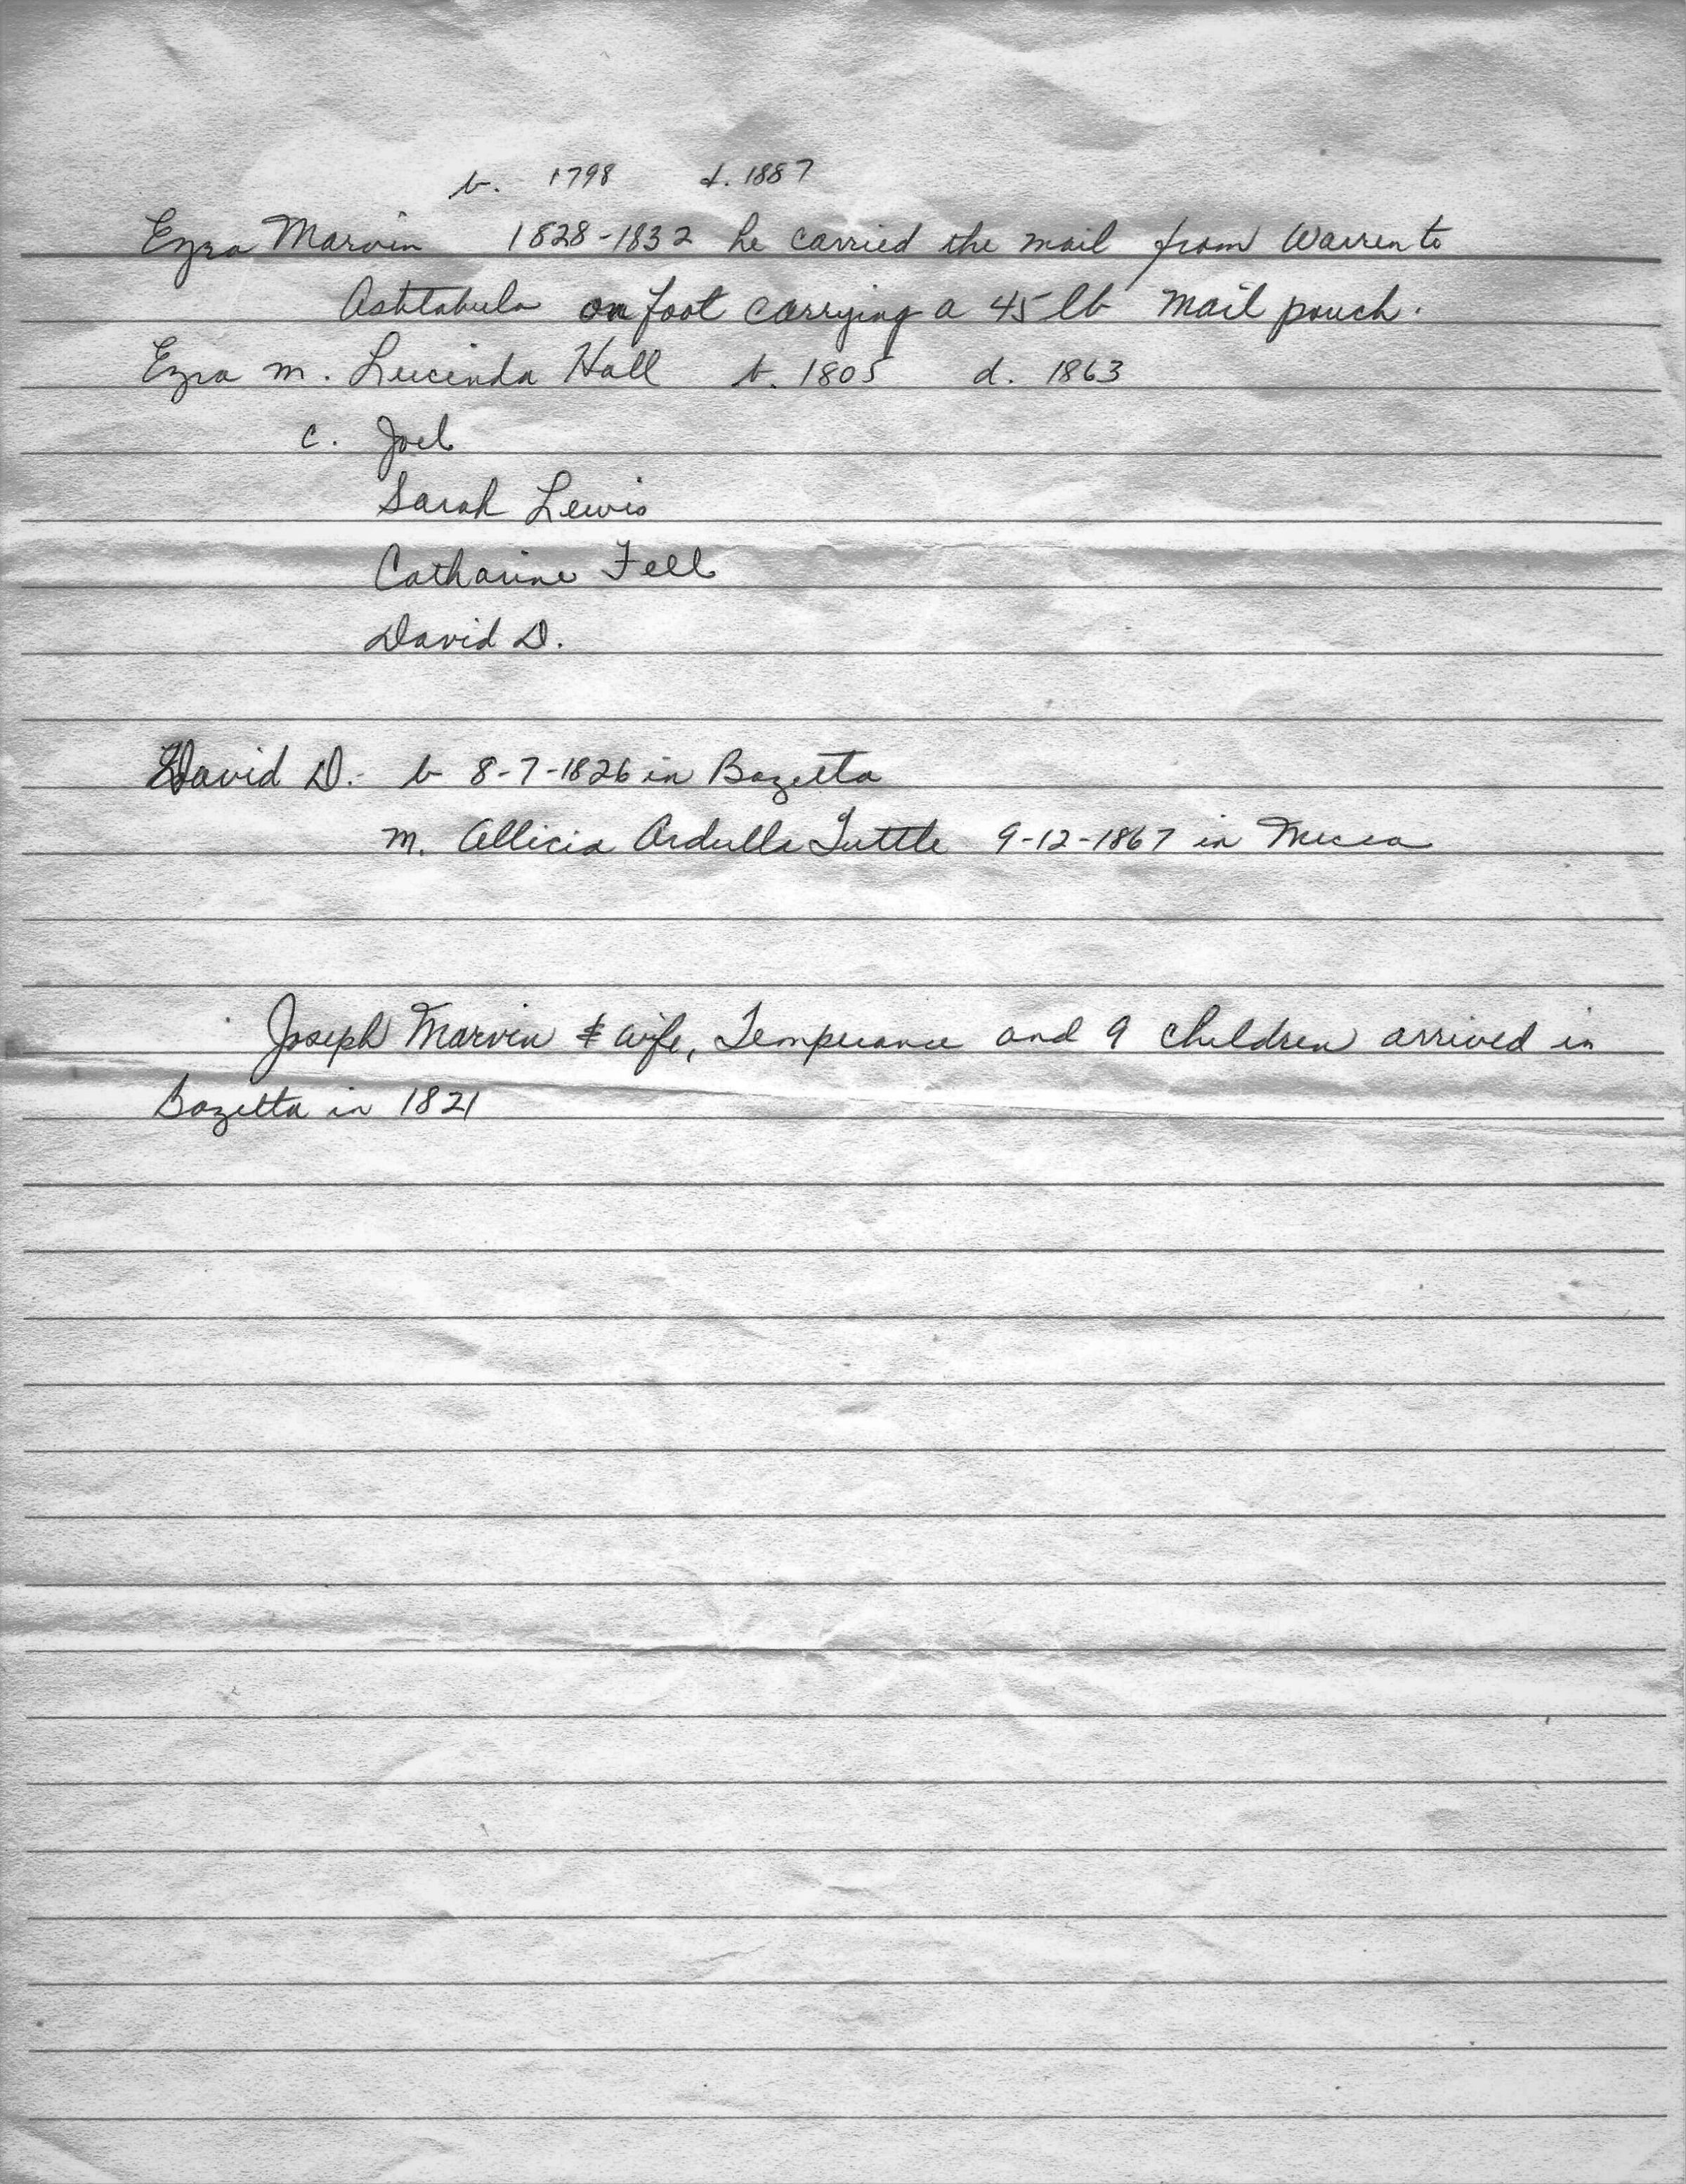 b. 1798 d. 1887
Ezra Marvin 1828-1832 he carried the mail from Warren to
Ashtabula on foot carrying a 45 lb mail pouch.
Ezra m. Lucinda Hall b. 1805 d. 1863
c. Joel
Sarah Lewis
Catharine Fell
David D.
David D. - b 8-7-1826 in Bazetta
m. Allicia Ardulla Tuttle 9-12-1867 in Mecca
Joseph Marvin & wife, Temperance and 9 children arrived in
Bazetta in 1821